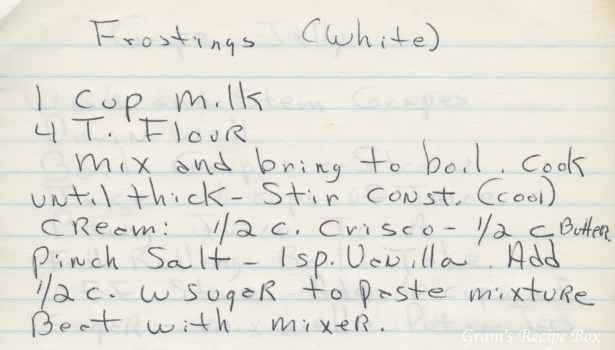 Frostings (White)
1 Cup milk
4 T. Flour
mix and bring to boil. Cook
until thick - Stir Const. (cool)
Cream: 1/2 c. Crisco - 1/2 c Butter
Pinch Salt - 1sp. Vanilla. Add
1/2 c. w Sugar to paste mixture
Beat with mixer.
Gram's Recipe Box